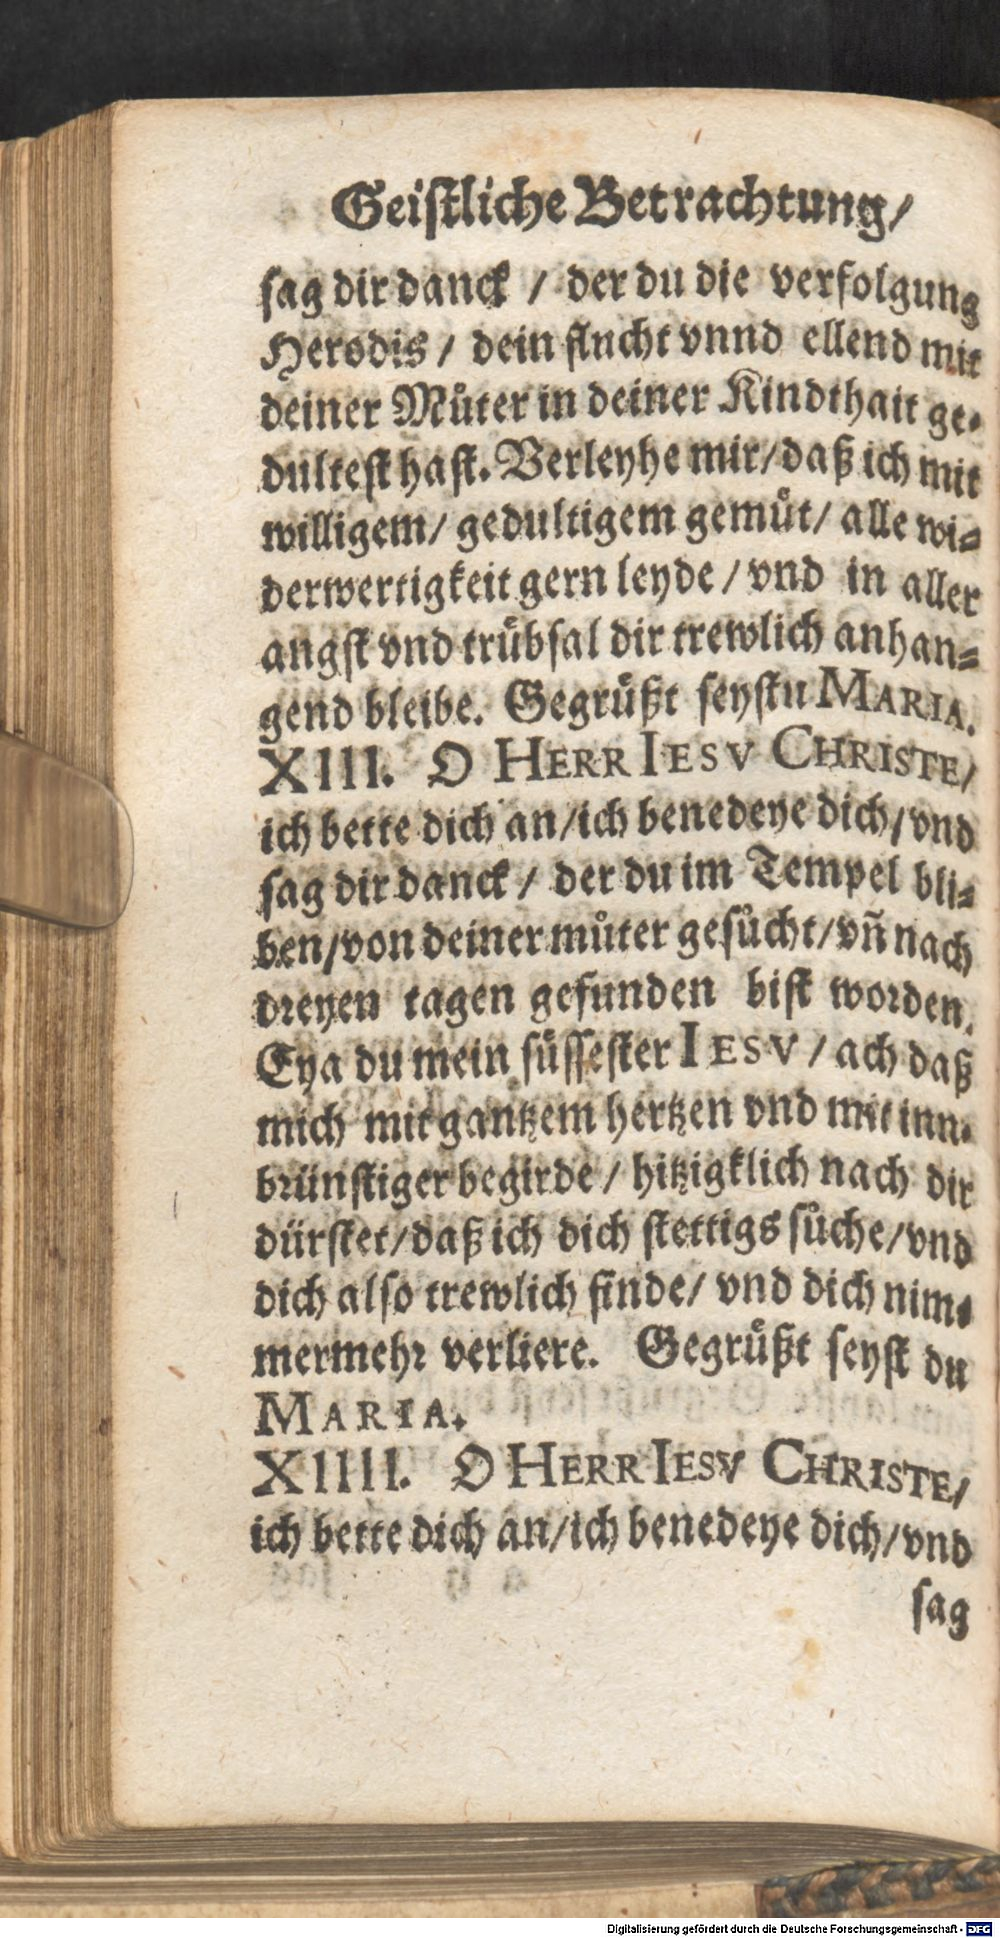 Geistliche Betrachtung/
sag dir danck / der du die verfolgung
Herodis / dein flucht vnnd ellend mit
deiner Můter in deiner Kindthait ge-
dultest hast. Verleyhe mir/ daß ich mit
willigem/ gedultigem gemůt/ alle wi-
derwertigkeit gern leyde / vnd in aller
angst vnd trůbsal dir trewlich anhan-
gend bleibe. Gegrůßt seystu MARIA.
XIII. O HERR IESV CHRISTE/
ich bette dich an/ich benedeye dich/vnd
sag dir danck / der du im Tempel bli-
ben/von deiner můter gesůcht/vñ nach
dreyen tagen gefunden bist worden.
Eya du mein sůssester IESV / ach daß
mich mit gantzem hertzen vnd mit inn-
brünstiger begirde / hitzigklich nach dir
dürstet/daß ich dich stettigs sůche/vnd
dich also trewlich finde/ vnd dich nim-
mermehr verliere. Gegrůßt seyst du
MARIA.
XIIII. O HERR IESV CHRISTE/
ich bette dich an/ich benedeye dich/vnd
sag
Digitalisierung gefördert durch die Deutsche Forschungsgemeinschaft - DFG